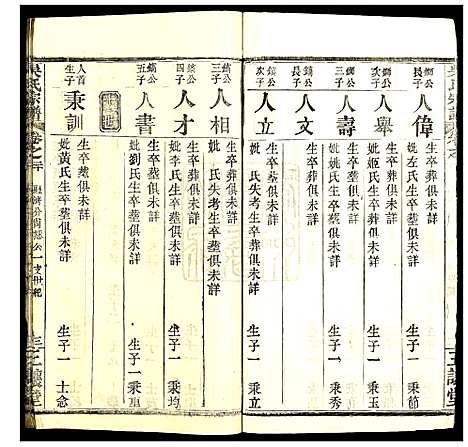 吳氏宗譜
人偉
生卒葬俱未詳
妣左氏生卒葬俱未詳
生子一 秉節
次子
人舉
生卒葬俱未詳
妣姬氏生卒葬俱未詳
生子一 秉玉
三子
人壽
生卒葬俱未詳
妣姚氏生卒葬俱未詳
生子一 秉秀
鎬公長子
人文
生卒葬俱未詳
妣 氏失考生卒葬俱未詳
鎬公次子
人立
生卒葬俱未詳
妣 氏失考生卒葬俱未詳
生子一 秉立
鎬公三子
人相
生卒葬俱未詳
妣 氏失考生卒葬俱未詳
鎬公四子
人才
生卒葬俱未詳
妣李氏生卒葬俱未詳
生子一 秉均
鎬公五子
人書
生卒葬俱未詳
妣劉氏生卒葬俱未詳
生子一 秉
人首生子
秉訓
生卒葬俱未詳
妣黃氏生卒葬俱未詳
生子一 士念
吳氏宗譜
卷之
三讓堂